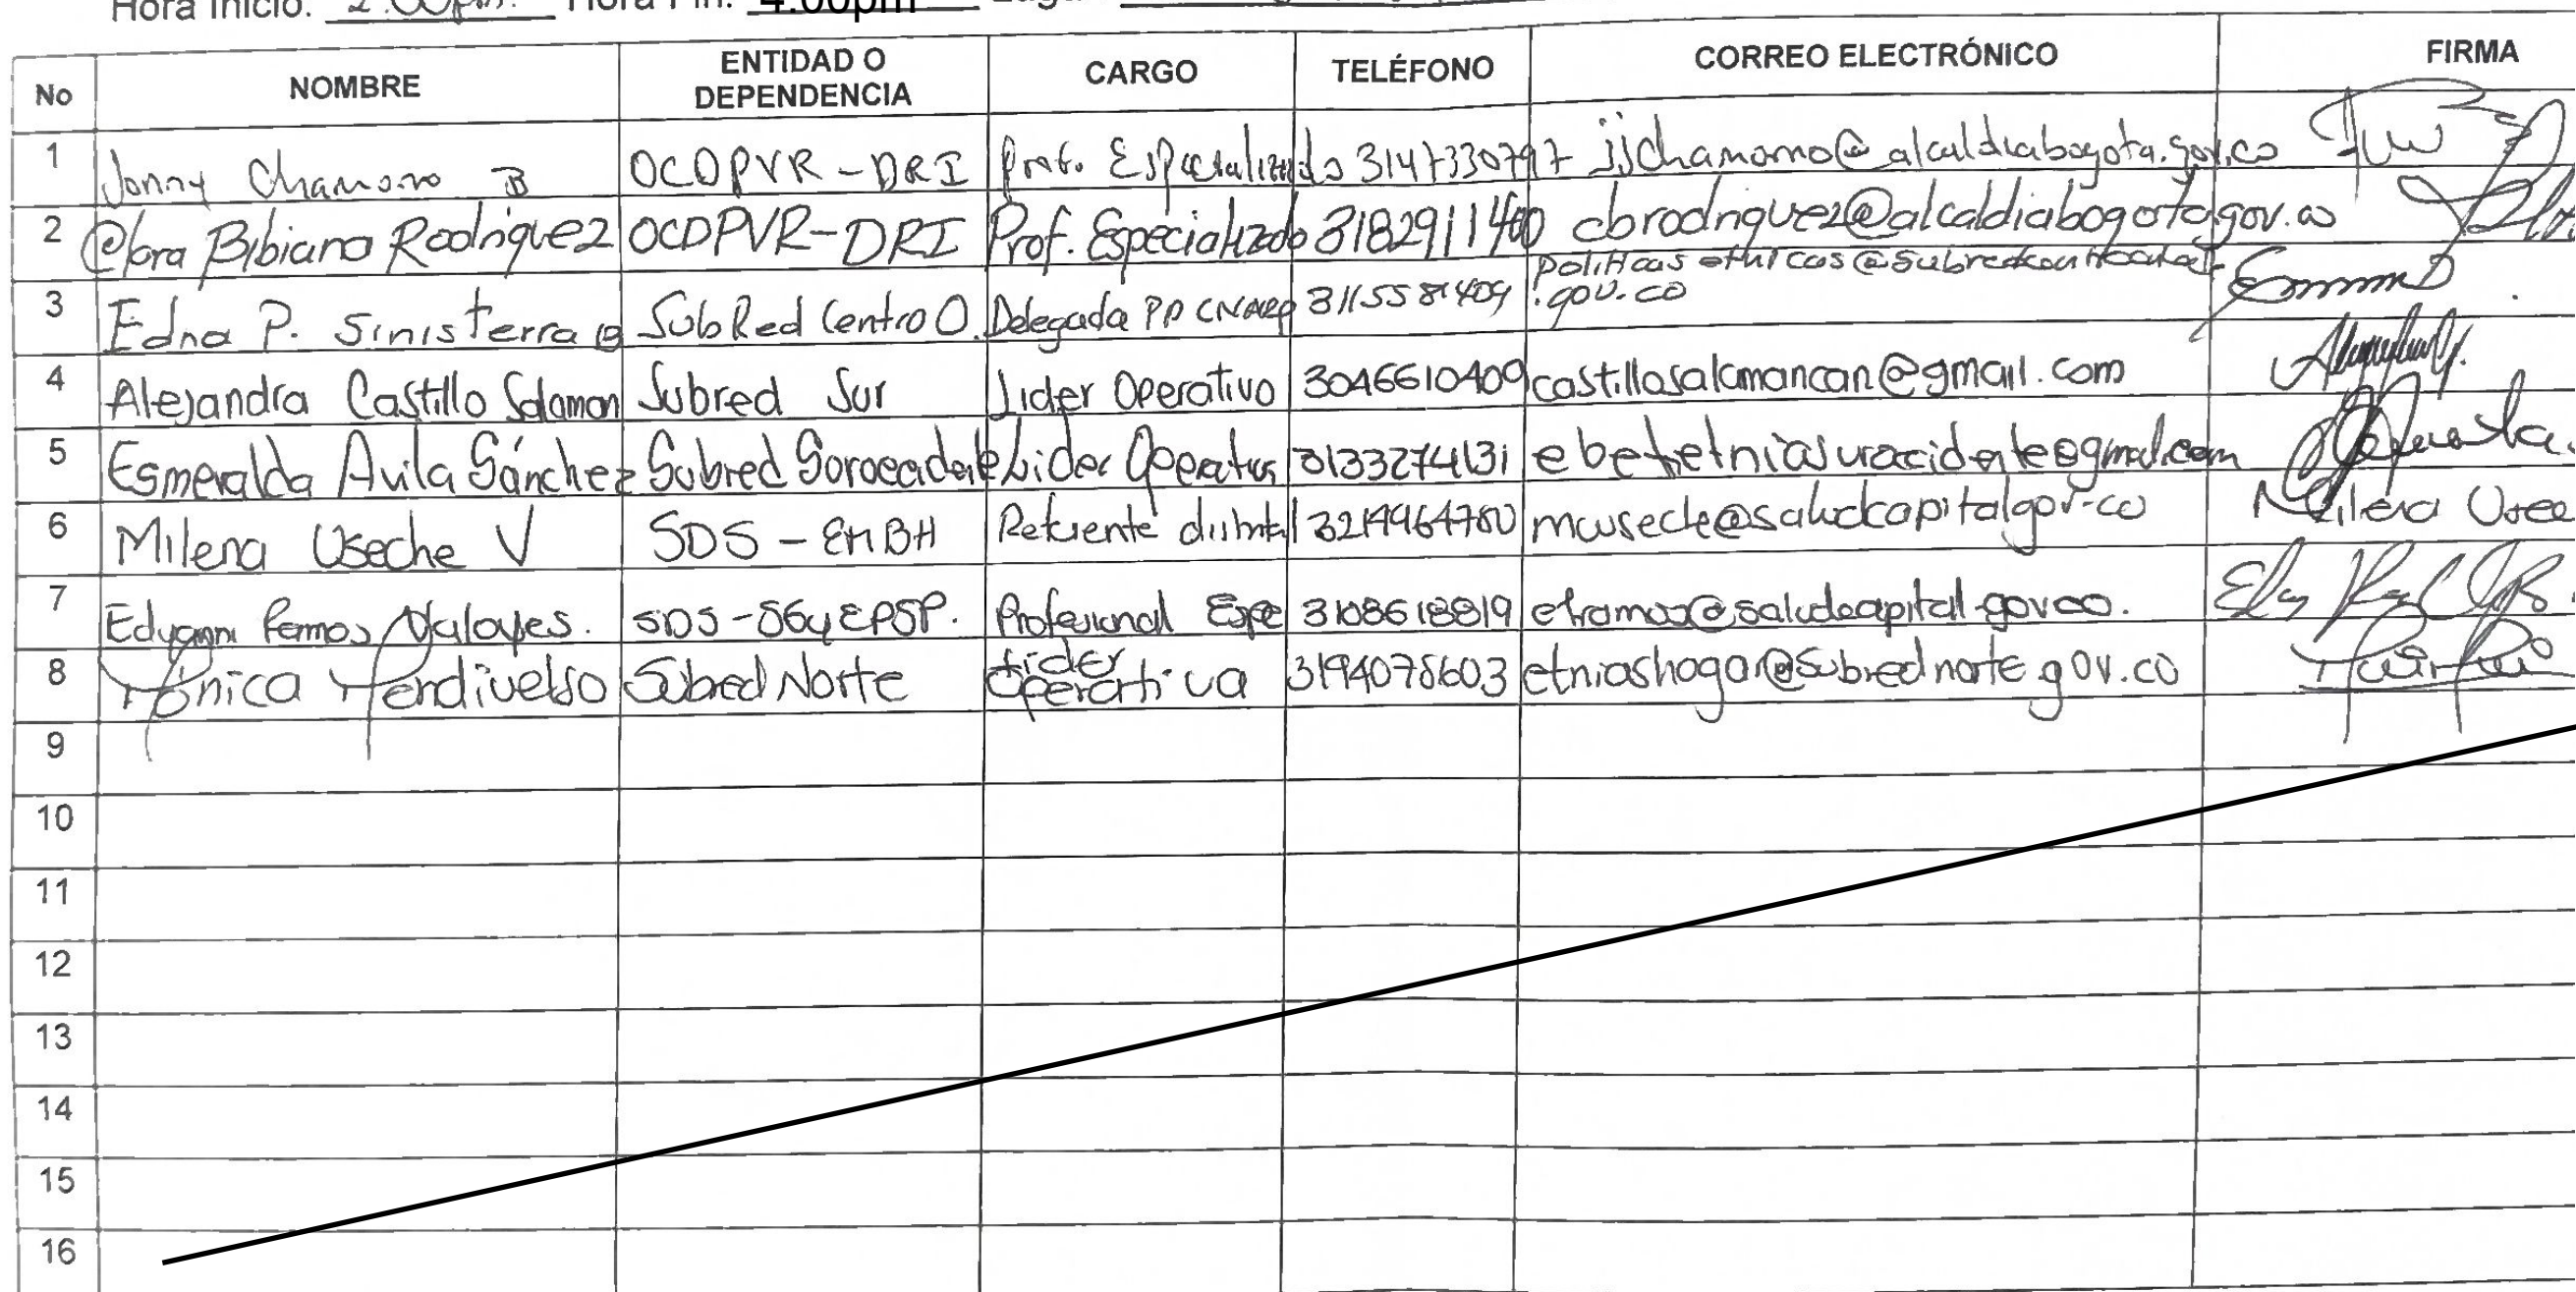 Hora Inicio: 2:00pm. Hora Fin: 4:00pm
No NOMBRE ENTIDAD O DEPENDENCIA CARGO TELÉFONO CORREO ELECTRÓNICO FIRMA
1 Jonny Chamorro B OCDPVR-DRI Prof. Especializado 3147330797 jjchamorro@alcaldiabogota.gov.co
2 Clara Bibiana Rodriguez OCDPVR-DRI Prof. Especializado 3182911400 cbrodriguez@alcaldiabogota.gov.co
3 Edna P. Sinisterra SubRed Centro O. Delegada PP 3115581409 .gov.co
4 Alejandra Castillo Salaman Subred Sur Lider Operativo 3046610409 castillosalamancan@gmail.com
5 Esmeralda Avila Sánchez Subred Suroccidente Lider Operativo 3133274131
6 Milena Useche V SDS - EMBH Referente distrital 3214964780 Milena
7 Ramos SDS - Profesional Espe 3108618819
8 Mónica Mendivelso Subred Norte Lider Operativa 3194075603 etniashogar@subrednorte.gov.co
9
10
11
12
13
14
15
16